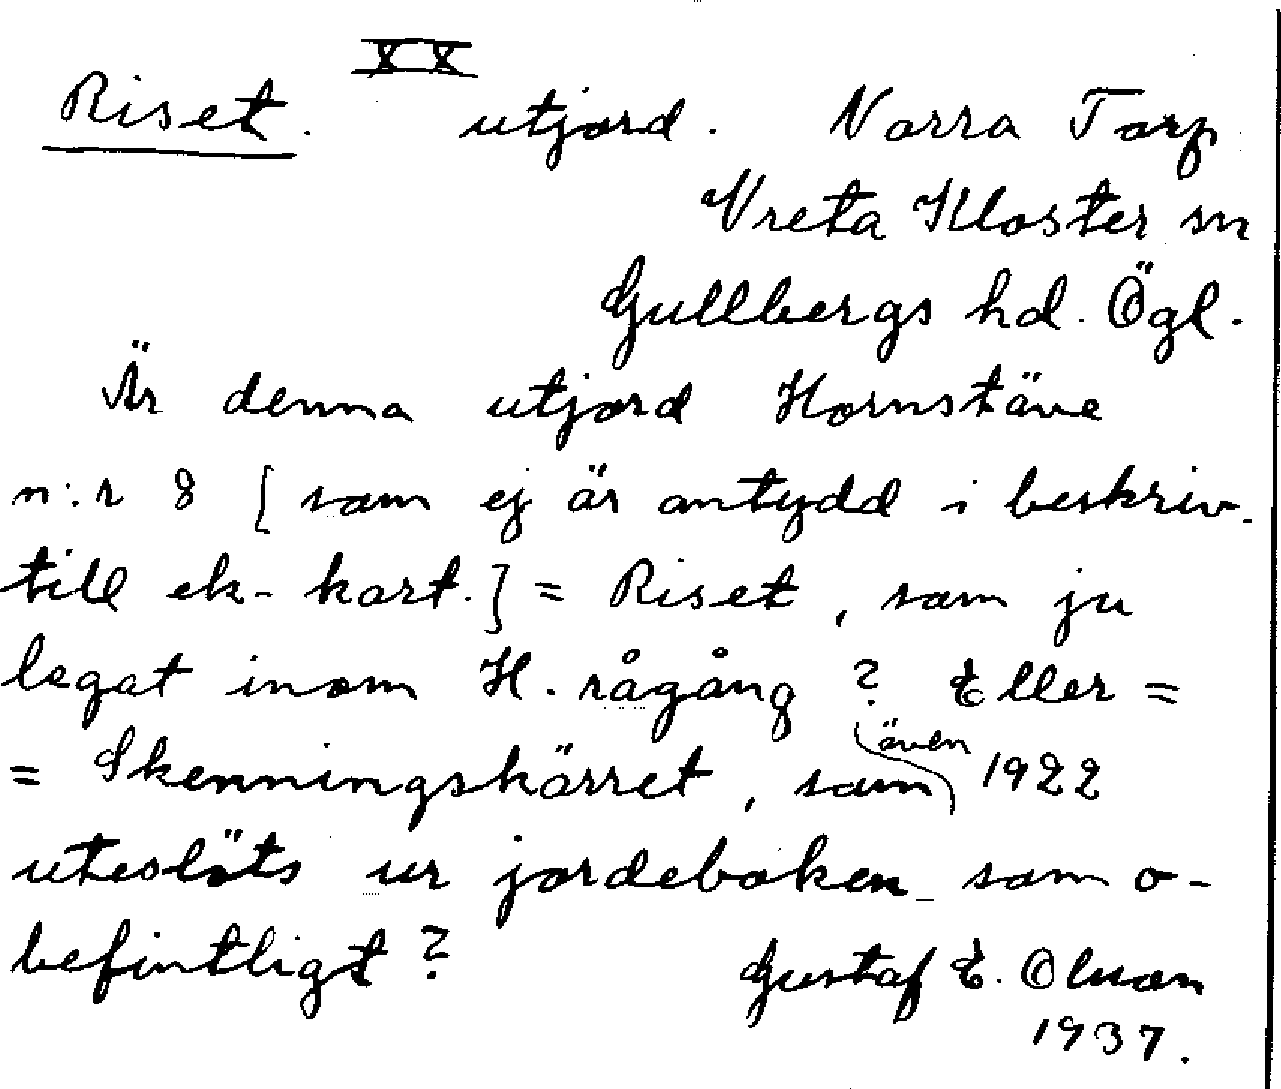 XX
Riset. utjord. Norra Torp
Vreta Kloster sn
Gullbergs hd. Ögl.
Är denna utjord Hornstäve
n:r 8 [som ej är antydd i beskriv.
till ek-kart.] = Riset, som ju
legat inom H. rågång? Eller =
= Skenningskärret, som även 1922
uteslöts ur jordeboken som o-
befintligt?
Gustaf E. Olsson
1937.